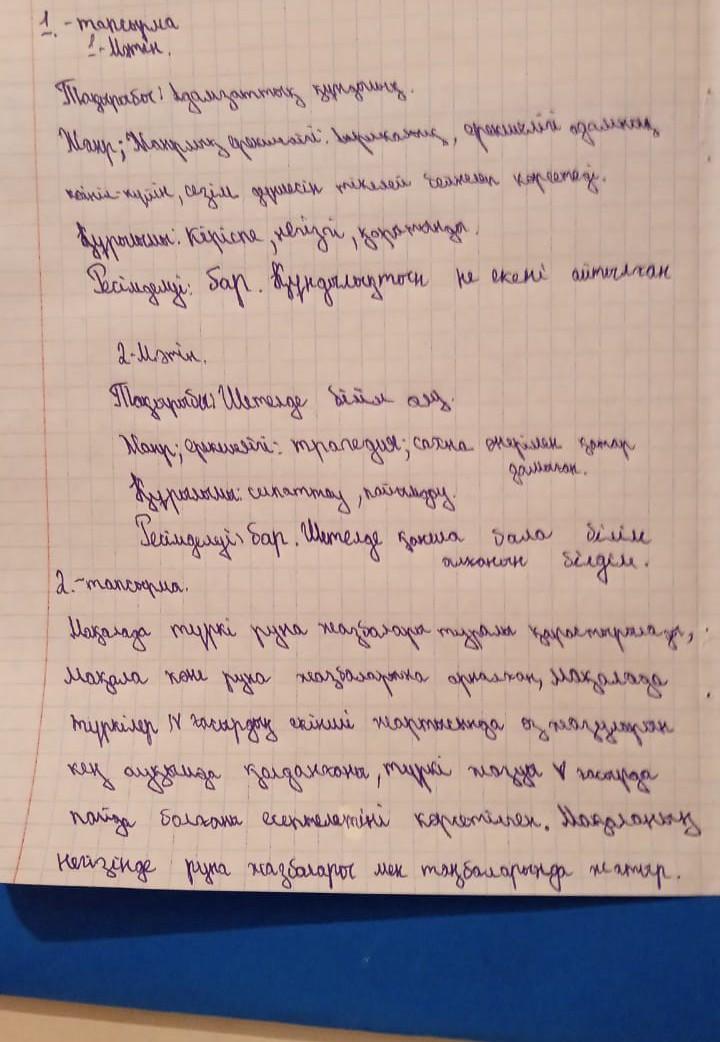 1.-тапсырма
1-Мәтін.
Тақырыбы: Адамзаттық құндылық.
Жанр; Жанрлық ерекшелігі: Лирикалық, ерекшелігі адамның
көңіл-күйін, сезім дүниесін тікелей бейнелеп көрсетеді.
Құрылымы: Кіріспе, негізгі, қорытынды.
Рәсімделуі: бар. Құндылықтың не екені айтылған
2-Мәтін.
Тақырыбы: Шетелде білім алу.
Жанр; ерекшелігі: трагедия; сахна өнерімен қатар
дамыған.
Құрылымы: сипаттау, пайымдау.
Рәсімделуі: бар. Шетелде қанша бала білім
алғанын білдім.
2.-тапсырма.
Мақалада түркі руна жазбалары туралы қарастырылады,
Мақала көне руна жазбаларына арналған, Мақалада
түркілер IV ғасырдың екінші жартысында өз жазуларын
кең ауқымда қолданғаны, түркі жазуы V ғасырда
пайда болғаны есептелетіні көрсетілген. Мақаланың
негізінде руна жазбалары мен таңбаларында жатыр.